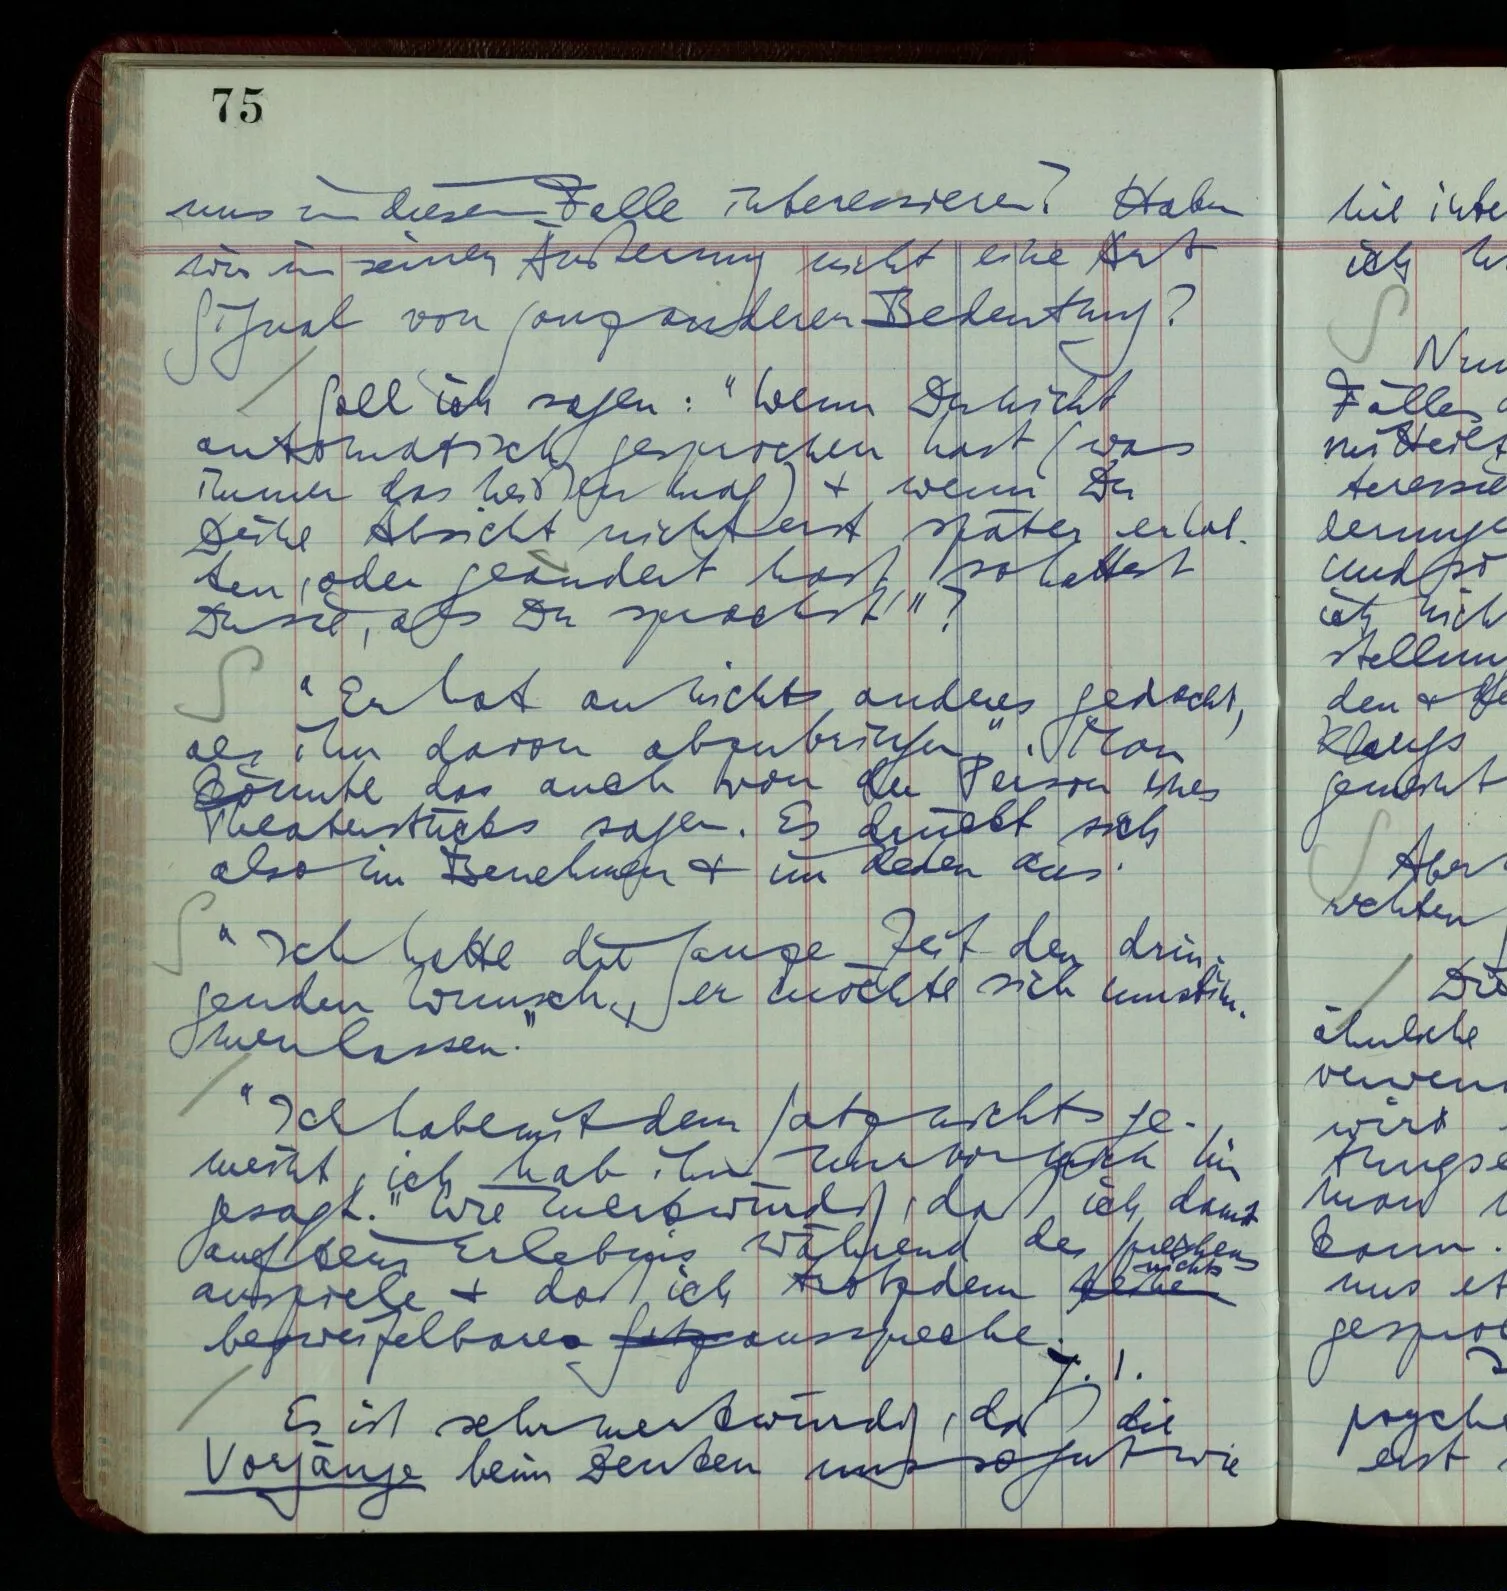 75
uns in diesem Falle interessieren? Haben
wir in seiner Äußerung nicht eine Art
Signal von ganz anderer Bedeutung?
Soll ich sagen: "Wenn Du nicht
automatisch gesprochen hast (was
immer das heißen mag) + wenn Du
Deine Absicht nicht erst später erhal-
ten, oder geändert hast, so hattest
Du sie, als Du sprachst'"?
"Er hat an nichts anderes gedacht,
als ihn davon abzubringen". Man
könnte das auch von der Person eines
Theaterstücks sagen. Es drückt sich
also im Benehmen + im Reden aus.
"Ich hatte die ganze Zeit den drin-
genden Wunsch, er möchte sich umstim-
men lassen."
"Ich habe mit dem Satz nichts ge-
meint, ich hab ihn nur vor mich hin
gesagt." Wie merkwürdig, daß ich damit
auf kein Erlebnis während des Sprechens
anspiele + daß ich trotzdem nichts
bezweifelbares ausspreche.
7.1.
Es ist sehr merkwürdig, daß die
Vorgänge beim Denken uns so gut wie
nie inte
ich
Nun
Falles
mitteilt
und so
ich nich
den +
gemeint
Aber
Die
ähnliche
wird
man
kann.
uns et
gespro
psycho
erst